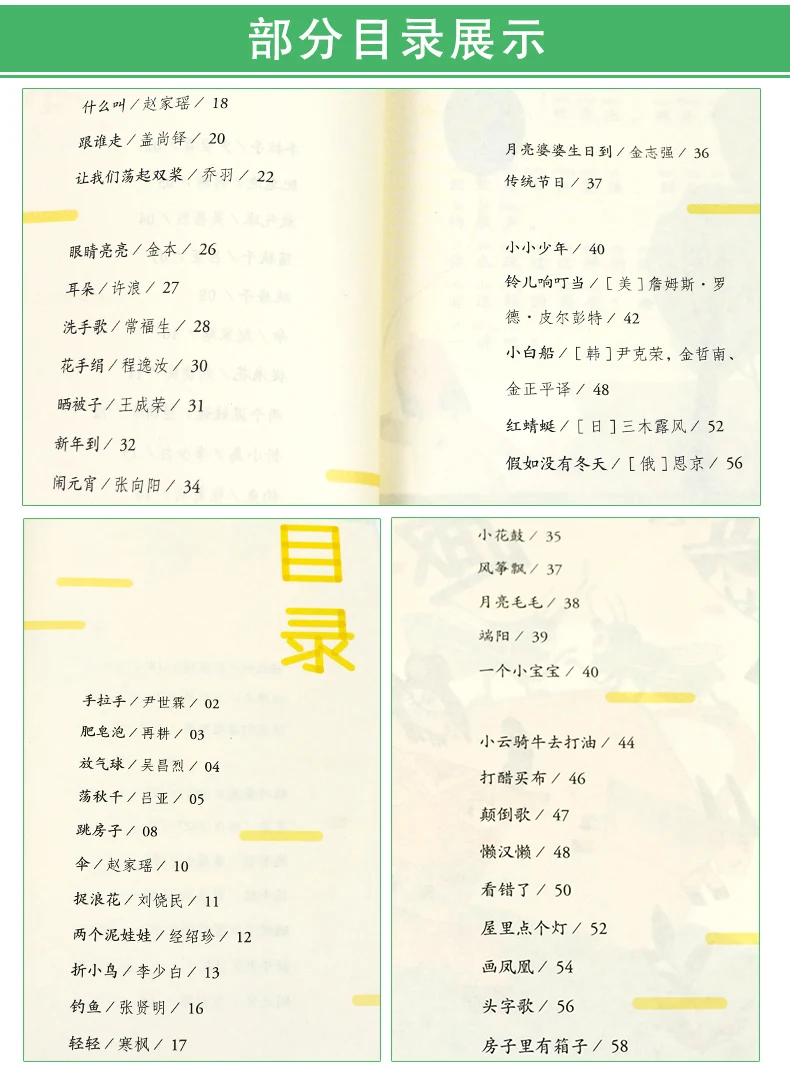 部分目录展示
什么叫／赵家瑶／ 18
跟谁走／盖尚铎／ 20
让我们荡起双桨／乔羽／ 22
眼睛亮亮／金本／ 26
耳朵／许浪／ 27
洗手歌／常福生／ 28
花手绢／程逸汝／ 30
晒被子／王成荣／ 31
新年到／ 32
闹元宵／张向阳／ 34
月亮婆婆生日到／金志强／ 36
传统节日／ 37
小小少年／ 40
铃儿响叮当／［美］詹姆斯·罗
德·皮尔彭特／ 42
小白船／［韩］尹克荣，金哲南、
金正平译／ 48
红蜻蜓／［日］三木露风／ 52
假如没有冬天／［俄］恩京／ 56
目
录
手拉手／尹世霖／ 02
肥皂泡／再耕／ 03
放气球／吴昌烈／ 04
荡秋千／吕亚／ 05
跳房子／ 08
伞／赵家瑶／ 10
捉浪花／刘饶民／ 11
两个泥娃娃／经绍珍／ 12
折小鸟／李少白／ 13
钓鱼／张贤明／ 16
轻轻／寒枫／ 17
小花鼓／ 35
风筝飘／ 37
月亮毛毛／ 38
端阳／ 39
一个小宝宝／ 40
小云骑牛去打油／ 44
打醋买布／ 46
颠倒歌／ 47
懒汉懒／ 48
看错了／ 50
屋里点个灯／ 52
画凤凰／ 54
头字歌／ 56
房子里有箱子／ 58